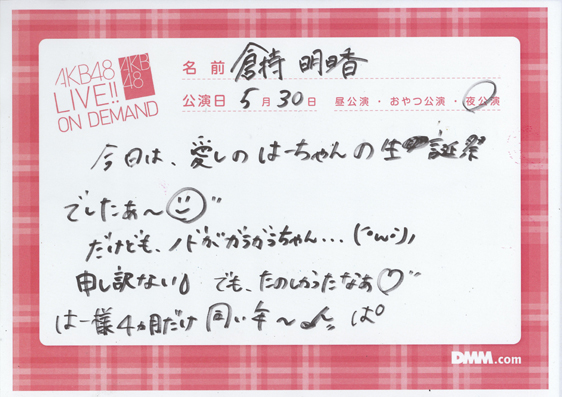 AKB48
LIVE!!
ON DEMAND
AKB
48
名前 倉持明日香
公演日 5月30日 昼公演・おやつ公演・夜公演
今日は、愛しのはーちゃんの生誕祭
でしたあ〜
だけども、ノドがガラガラちゃん...(´・ω・`),
申し訳ない でも、たのしかったなあ♡
はー様4ヵ月だけ同い年〜
DMM.com